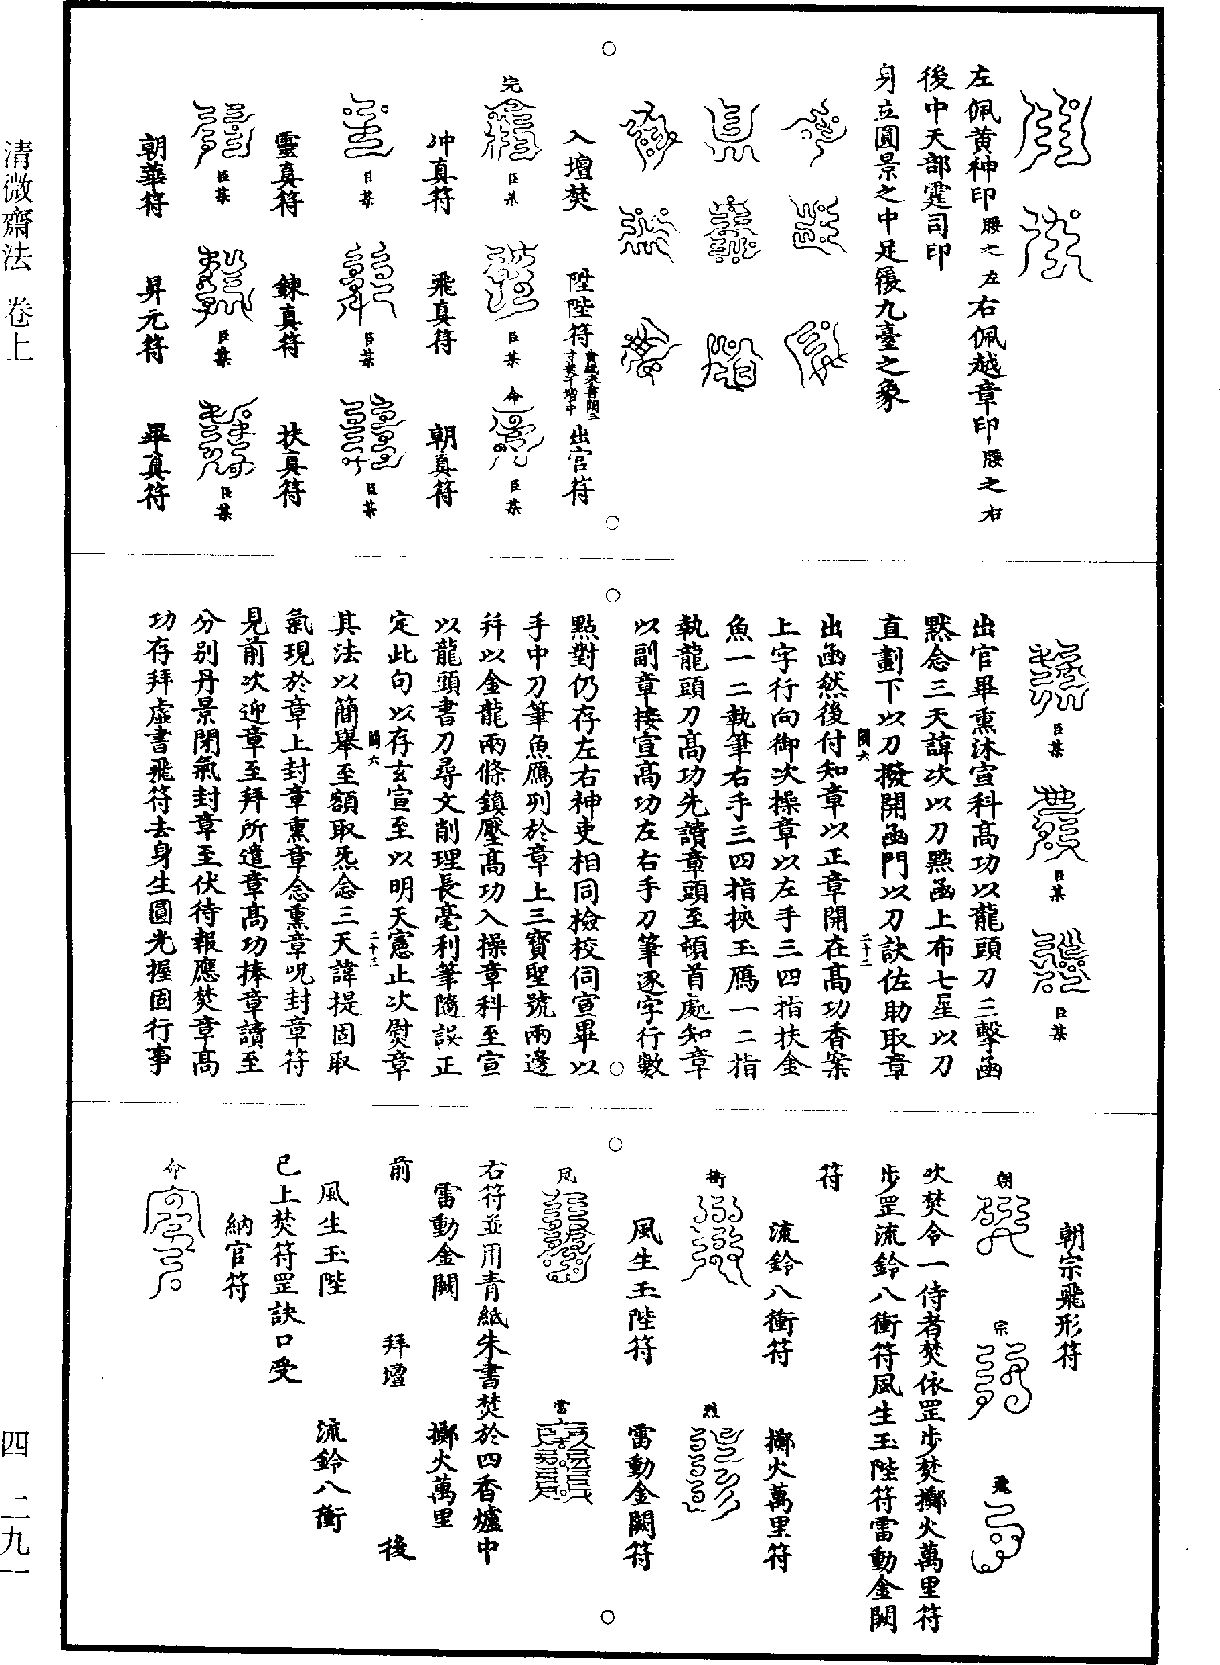 左佩黃神印腰之左右佩越章印腰之右
後中天部霆司印
身立圓景之中足履九臺之象
入壇焚
陞陛符
出官符
完
臣某
臣某
命
臣某
冲真符
飛真符
朝真符
臣某
臣某
臣某
靈真符
鍊真符
扶真符
臣某
臣某
臣某
朝華符
昇元符
畢真符
臣某
臣某
臣某
出官畢熏沐宣科高功以龍頭刀三擊函
默念三天諱次以刀點函上布七星以刀
直劃下以刀撥開函門以刀訣佐助取章
闕六
二十二
出函然後付知章以正章開在高功香案
上字行向御次操章以左手三四指扶金
魚一二執筆右手三四指挾玉鴈一二指
執龍頭刀高功先讀章頭至頓首處知章
以副章接宣高功左右手刀筆逐字行數
點對仍存左右神吏相同檢校伺宣畢以
手中刀筆魚鴈列於章上三寶聖號兩邊
幷以金龍兩條鎮壓高功入操章科至宣
以龍頭書刀尋文削理長毫利筆隨誤正
定此句以存玄宣至以明天憲止次熨章
闕六
二十三
其法以簡舉至額取炁念三天諱提固取
氣現於章上封章熏章念熏章呪封章符
見前次迎章至拜所遣章高功捧章讀至
分別丹景閉氣封章至伏待報應焚章高
功存拜虛書飛符去身生圓光握固行事
朝宗飛形符
朝
宗
飛
次焚令一侍者焚依罡步焚擲火萬里符
步罡流鈴八衝符風生玉陛符雷動金闕
符
流鈴八衝符
擲火萬里符
衝
烈
風生玉陛符
雷動金闕符
風
雷
右符並用青紙朱書焚於四香爐中
雷動金闕
擲火萬里
前
拜壇
後
風生玉陛
流鈴八衝
已上焚符罡訣口受
納官符
命
清微齋法 卷上
四 二九一